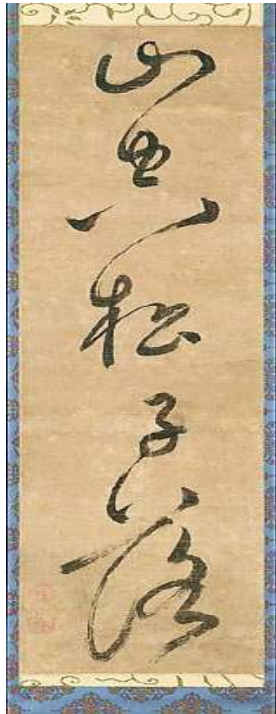 山松子落